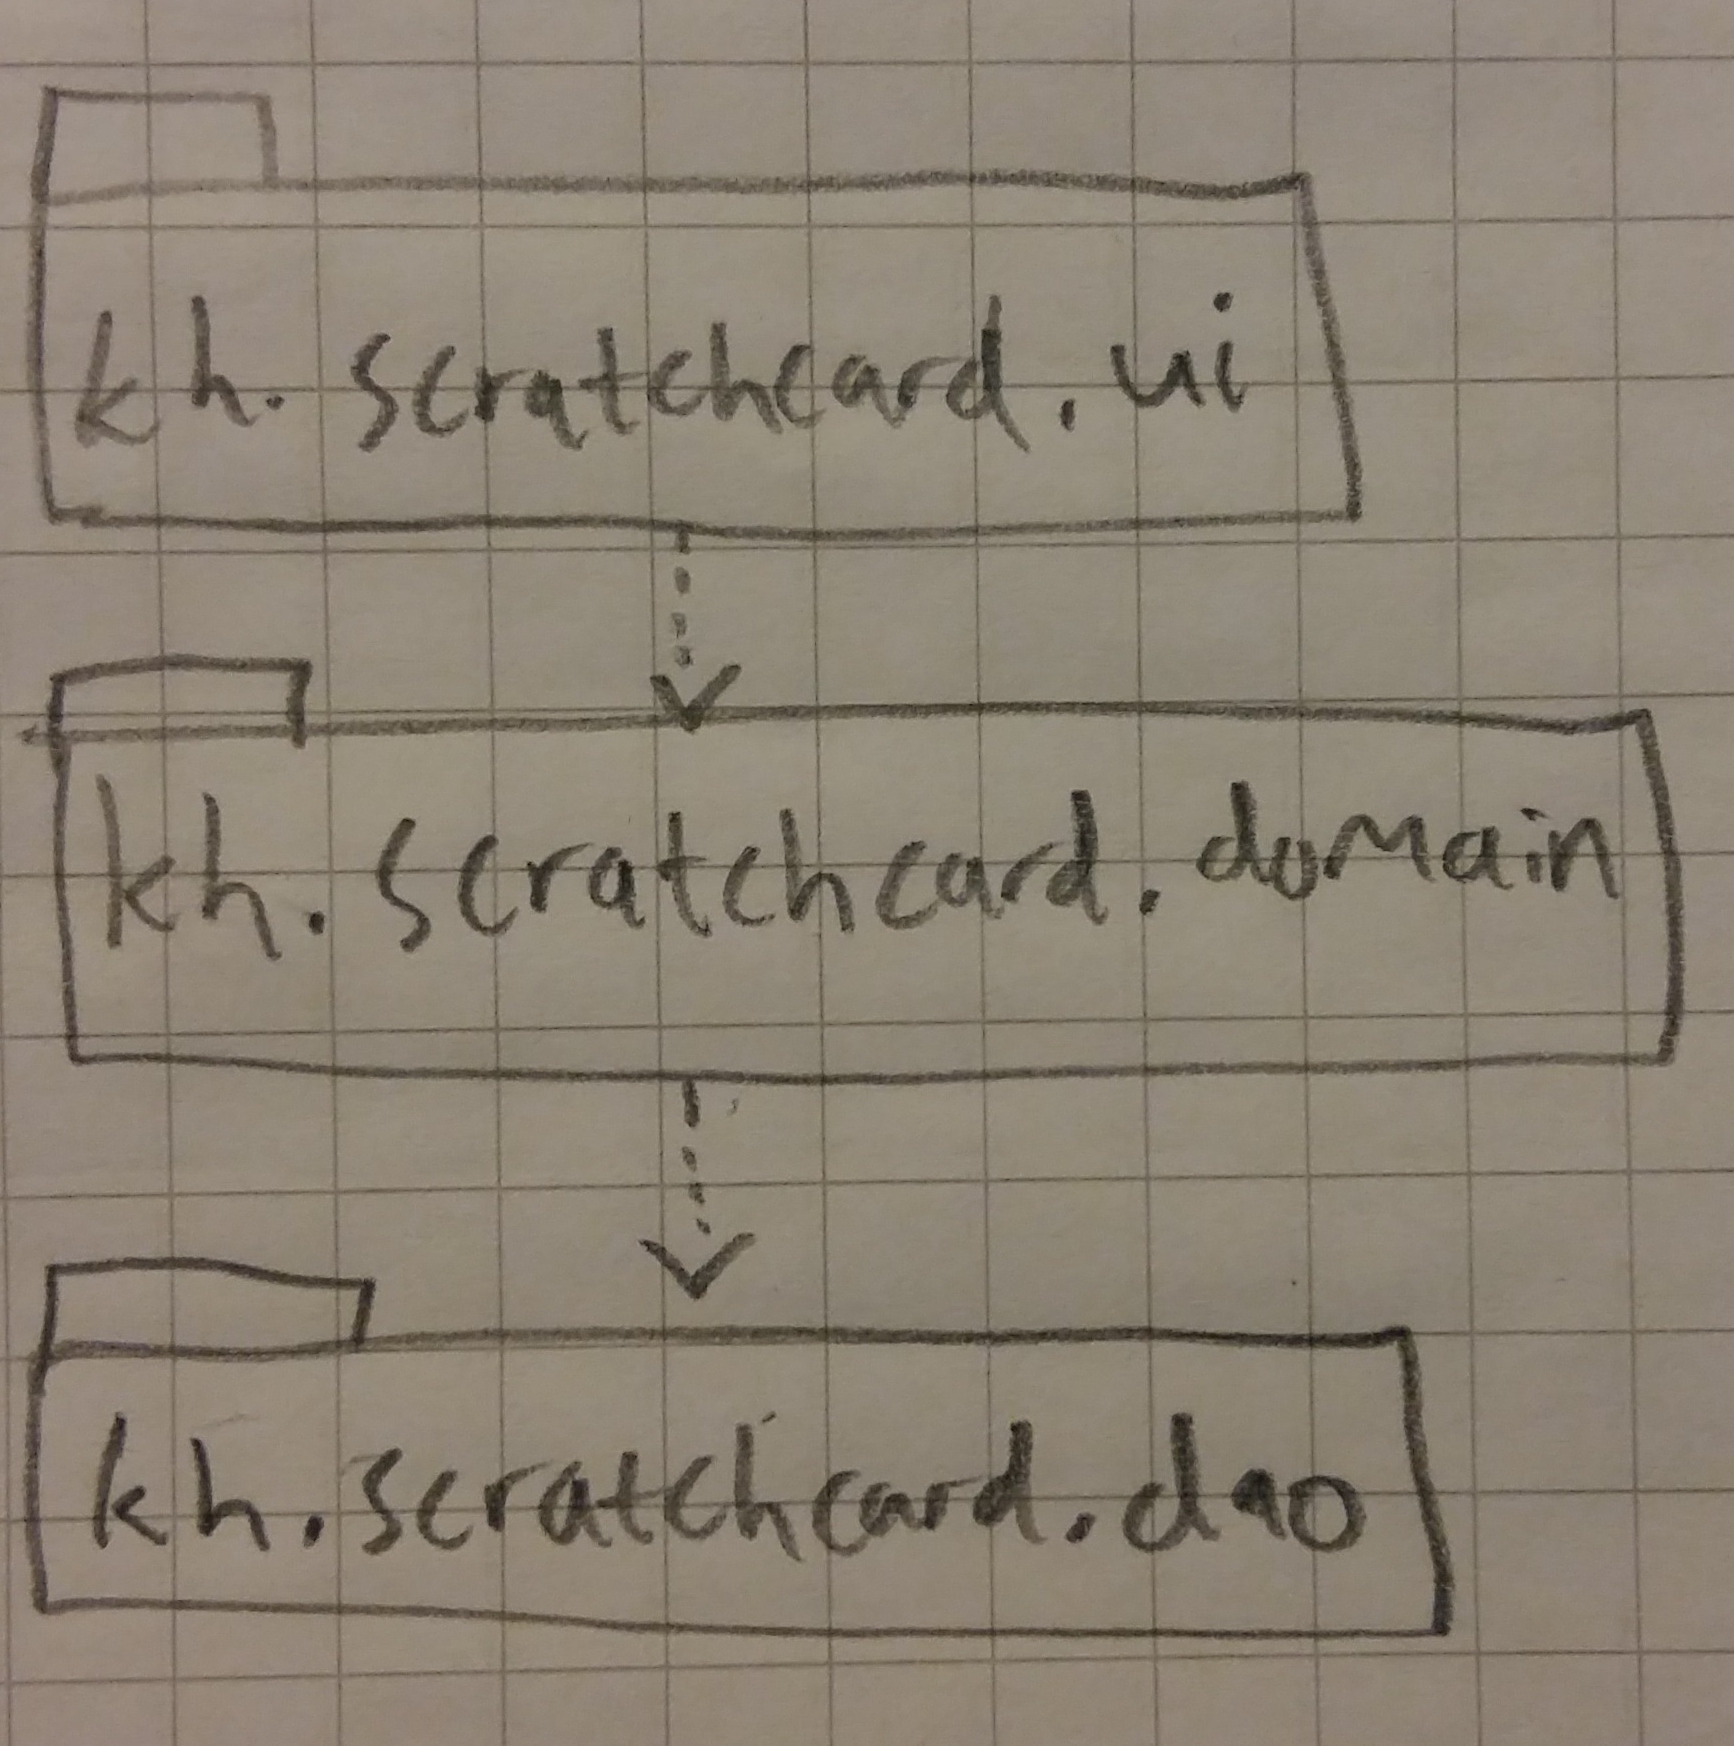 kh.scratchcard.ui
kh.scratchcard.domain
kh.scratchcard.dao